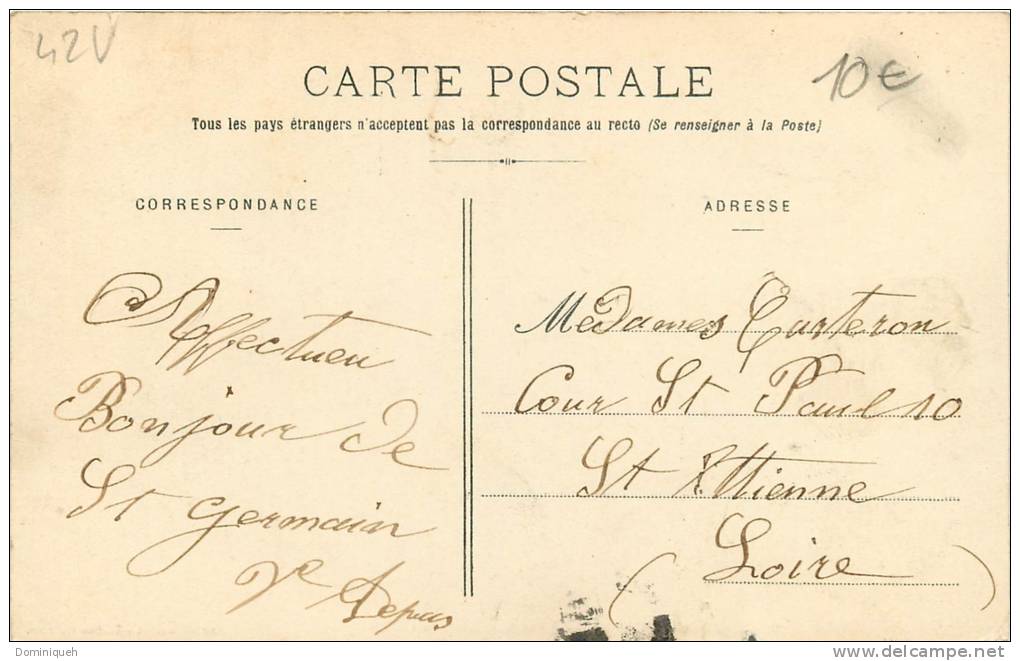 42V
10€
CARTE POSTALE
Tous les pays étrangers n'acceptent pas la correspondance au recto (Se renseigner à la Poste)
CORRESPONDANCE
Affectueu
Bonjour de
St Germain
Ve Depras
ADRESSE
MeDames Carteron
Cour St Paul 10
St Ettienne
(Loire)
Dominiqueh
http://www.delcampe.net